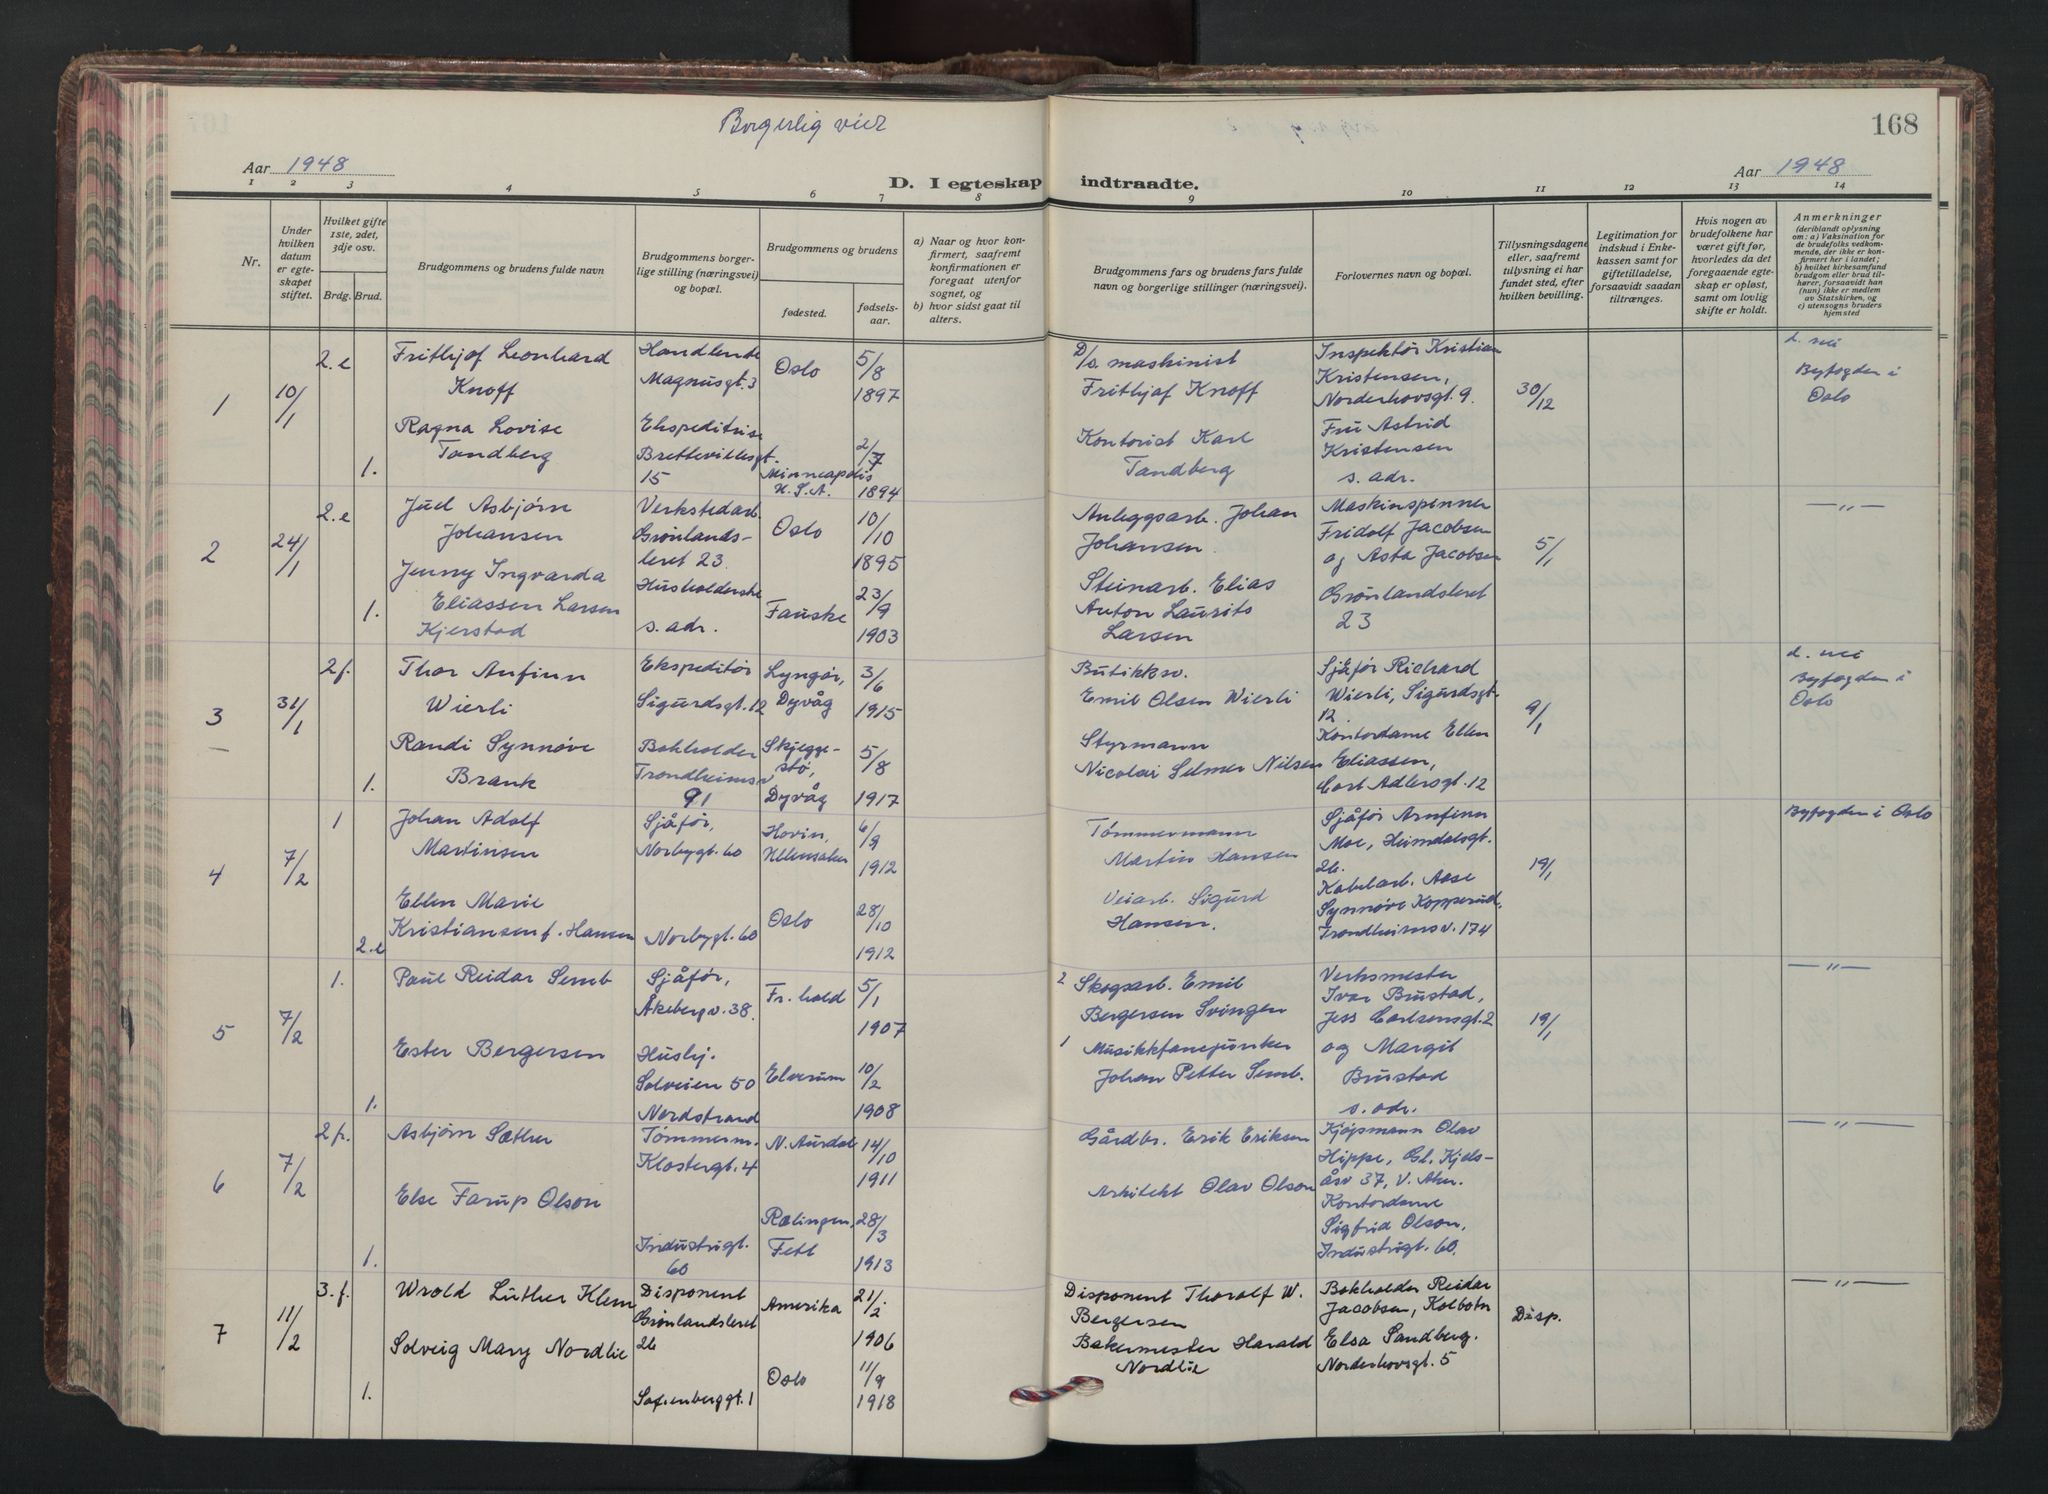 Borgerlig viet
168
Aar 1948
D. I egteskap indtraadte.
Aar 1948
1 2 3 4 5 6 7 8 9 10 11 12 13 14
Nr.
Under hvilken datum er egteskapet stiftet.
Hvilket gifte 1ste, 2det, 3dje osv.
Brdg. Brud.
Brudgommens og brudens fulde navn
Brudgommens borgerlige stilling (næringsvei) og bopæl.
Brudgommens og brudens
fødested.
fødselsaar.
a) Naar og hvor konfirmert, saafremt konfirmationen er foregaat utenfor sognet, og
b) hvor sidst gaat til alters.
Brudgommens fars og brudens fars fulde navn og borgerlige stillinger (næringsvei).
Forlovernes navn og bopæl.
Tillysningsdagene eller, saafremt tillysning ei har fundet sted, efter hvilken bevilling.
Legitimation for indskud i Enkekassen samt for giftetilladelse, forsaavidt saadan tiltrænges.
Hvis nogen av brudefolkene har været gift før, hvorledes da det foregaaende egteskap er opløst, samt om lovlig skifte er holdt.
Anmerkninger
(deriblandt oplysning om: a) Vaksination for de brudefolks vedkommende, der ikke er konfirmert her i landet;
b) hvilket kirkesamfund brudgom eller brud tilhører, forsaavidt han (hun) ikke er medlem av Statskirken, og
c) utensogns bruders hjemsted
1
10/1
2.e
Frithjof Leonhard
Knoff
Handlende
Magnusgt. 3
Oslo
5/8
1897
D/s. maskinist
Frithjof Knoff
Inspektør Kristian
Kristensen,
Norderhovsgt. 9.
30/12
Byfogden i
Oslo
1.
Ragna Lovise
Tandberg
Ekspeditrise
Brettevillesgt.
15
Minneapolis
U.S.A.
2/7
1894
Kontorist Karl
Tandberg
Fru Astrid
Kristensen
s. adr.
2
24/1
2.e
Juel Asbjørn
Johansen
Verkstedarb.
Grønlands-
leret 23.
Oslo
10/10
1895
Anleggsarb. Johan
Johansen.
Maskinspenner
Fridolf Jacobsen
og Asta Jacobsen
5/1
—"—
1.
Jenny Ingvarda
Eliassen Larsen
Kjerstad
Husholderske
s. adr.
Fauske
23/9
1903
Steinarb. Elias
Anton Laurits
Larsen
Grønlandsleret
23
3
31/1
2f.
Thor Anfinn
Wierli
Ekspeditør
Sigurdsgt. 12
Lyngør,
Dyvåg
3/6
1915
Butikksv.
Emil Olsen Wierli
Sjåfør Richard
Wierli, Sigurdsgt.
12.
9/1
Byfogden i
Oslo
1.
Randi Synnøve
Brank
Bokholder
Trondheimsv
91
Skjegge-
stø,
Dyvåg
5/8
1917
Styrmann
Nicolai Selmer Nilsen
Kontordame Ellen
Eliassen,
Cort Adlersgt. 12
4
7/2
1
Johan Adolf
Martinsen
Sjåfør,
Norbygt. 60
Hovin,
Ullensaker
6/9
1912
Tømmermann
Martin Hansen
Sjåfør Arnfinn
Moe, Heimdalsgt.
26.
19/1
Byfogden i Oslo
2.e
Ellen Marie
Kristiansen f. Hansen
Norbygt. 60
Oslo
28/10
1912
Veiarb. Sigurd
Hansen.
Kabelarb. Aase
Synnøve Kopperud,
Trondheimsv. 174
5
7/2
1.
Paul Reidar Semb
Sjåfør,
Åkebergv. 38.
Fr. hald
5/1
1907
2 Skogsarb. Emil
Bergersen Svingen
Verksmester
Ivar Brustad,
Jess Carlsensgt. 2
19/1
—"—
1.
Ester Bergersen
Hushj.
Solveien 50
Nordstrand
Elverum
10/2
1908
1 Musikkfanejunker
Johan Petter Semb.
og Margit
Brustad
s. adr.
6
7/2
2f.
Asbjørn Sæther
Tømmerm.
Klostergt. 4
N. Aurdal
14/10
1911
Gårdbr. Erik Eriksen
Kjøpsmann Olav
Hippe, Gl. Kjels-
åsv 37, V. Aker.
—"—
1.
Else Farup Olson
Industrigt.
60
Rælingen,
Fett
28/3
1913
Arkitekt Olav Olson
Kontordame
Sigfrid Olson,
Industrigt. 60.
7
11/2
3.f.
Wrold Luther Klem
Disponent
Grønlandsleret
26
Amerika
21/2
1906
Disponent Thoralf W.
Bergersen
Bokholder Reidar
Jacobsen, Kolbotn
Disp.
—"—
1.
Solveig Mary Nordlie
Sofienberggt. 1
Oslo
11/9
1918
Bakermester Harald
Nordlie
Elsa Sandberg.
Norderhovsgt. 5